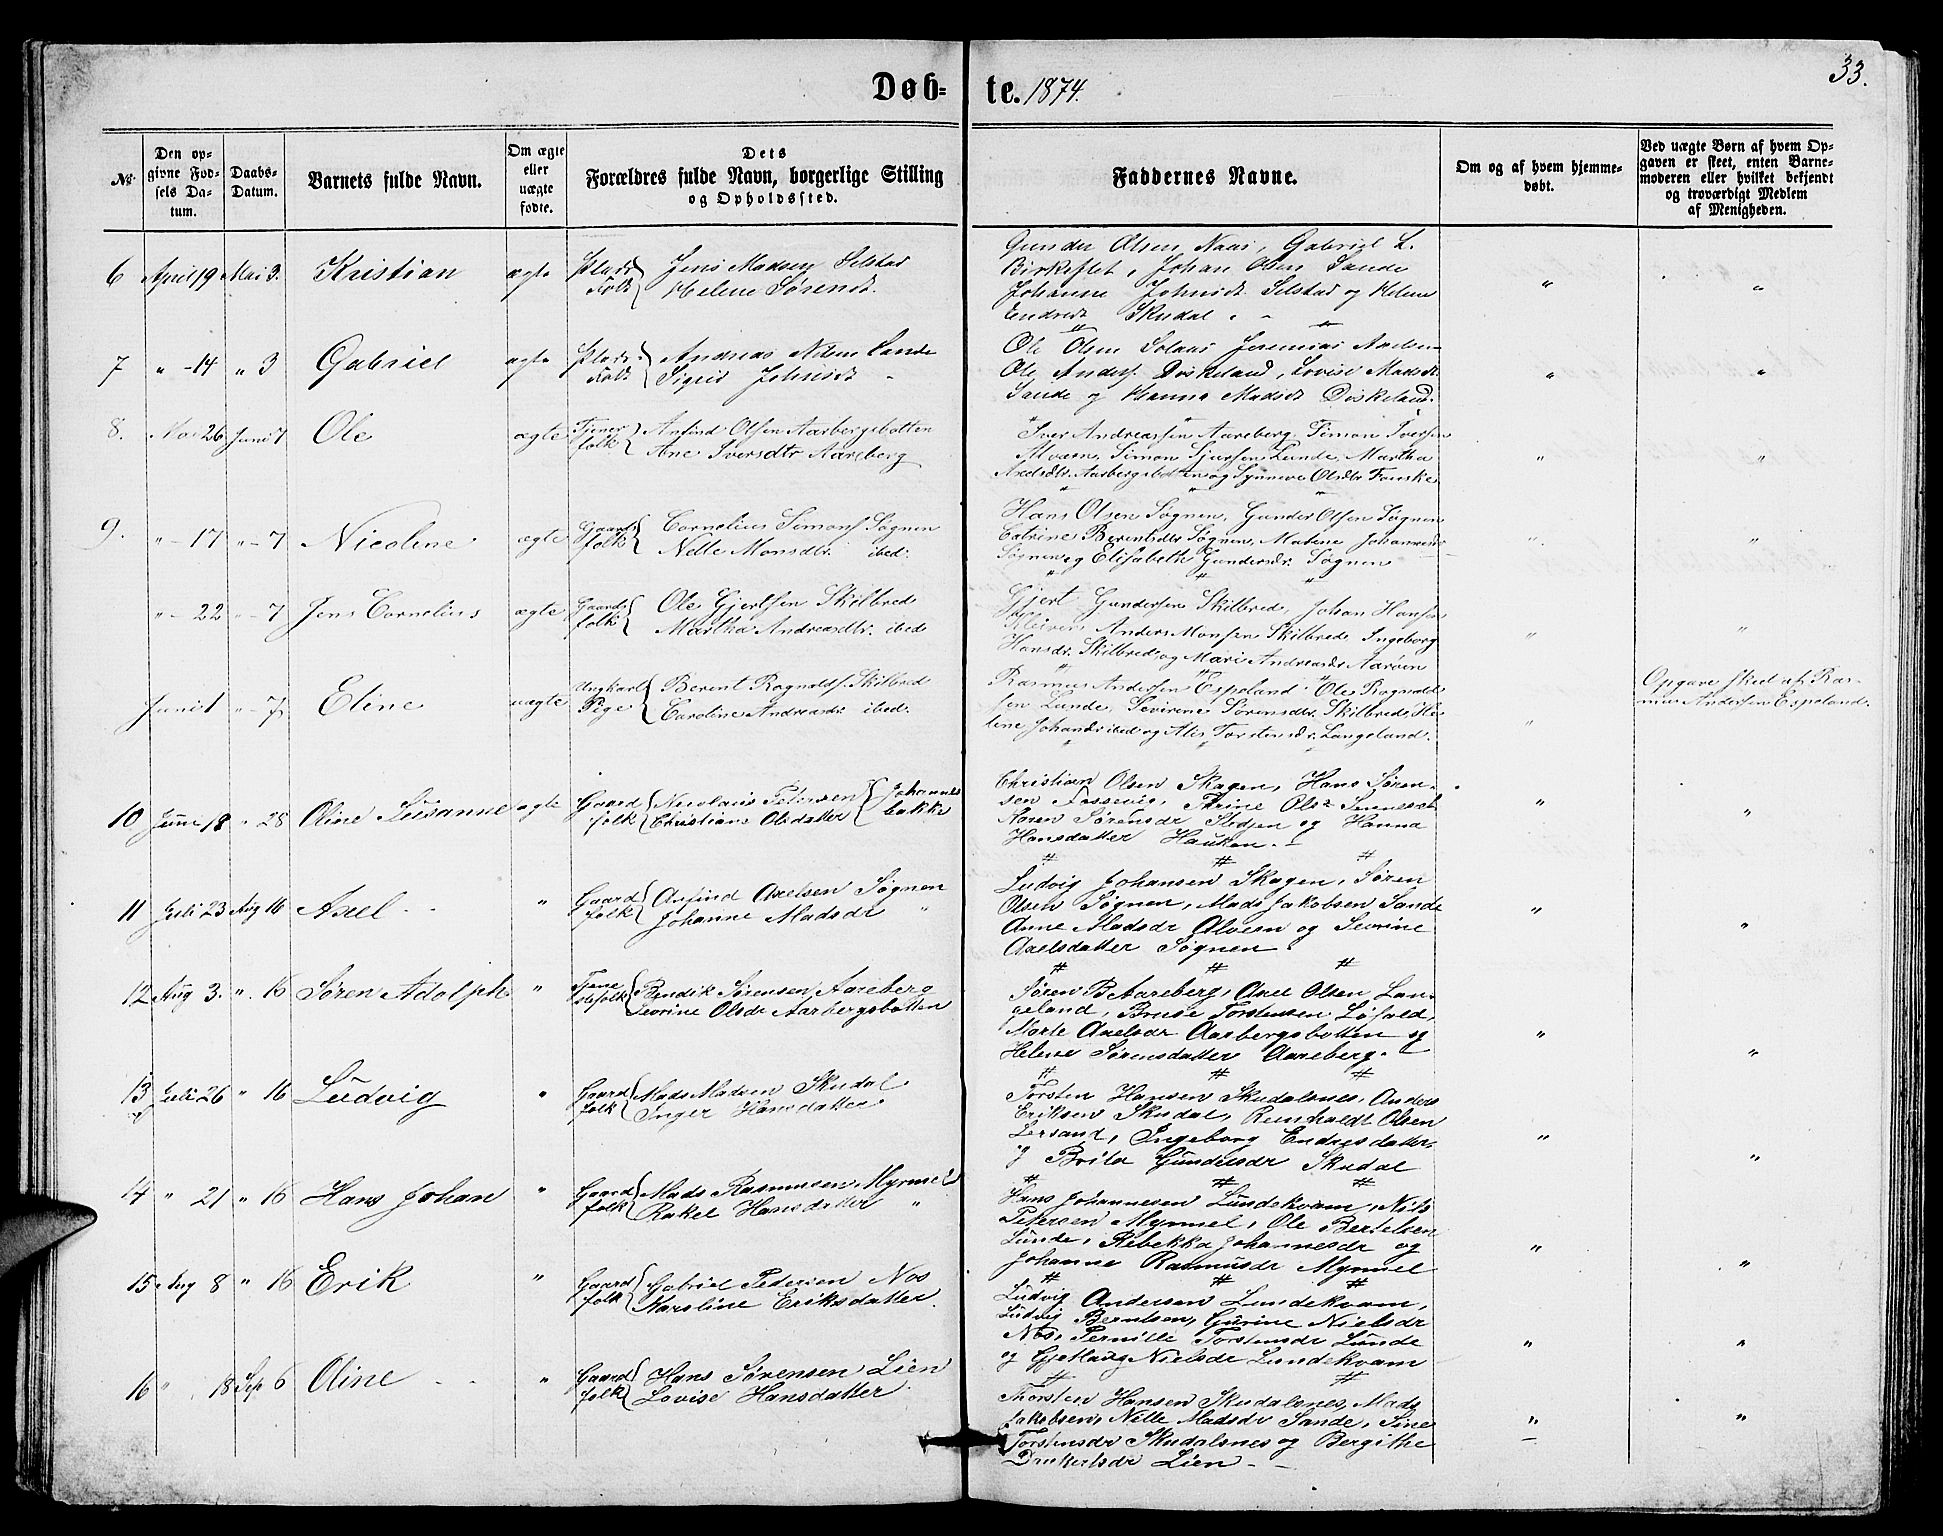 Døbte. 1874. 33.
№ | Den opgivne Fødsels Datum. | Daabs-Datum. | Barnets fulde Navn. | Om ægte eller uægte fødte. | Dets Forældres fulde Navn, borgerlige Stilling og Opholdssted. | Faddernes Navne. | Om og af hvem hjemmedøbt. | Ved uægte Børn af hvem Opgaven er skeet, enten Barnemoderen eller hvilket bekjendt og troværdigt Medlem af Menigheden.
6 April 19 Mai 3. Kristian ægte Plads Folk Jens Madsen Selstad
Helene Sørensd.
Gunder Olsen Naas, Gabriel L.
Birkeflet, Johan Olsen Sande
Johanne Johnsdt. Selstad og Helene
Endresdt Skudal
7 " - 14 " 3 Gabriel ægte Plads Folk Andreas Nilsen Sande
Sigrid Johnsdt
Ole Olsen Solaas Jeremias Axelsen
Ole Anders. Diskeland, Lovise Madsdt
Sande og Hanna Madsdt Diskeland.
8. Mai 26 Juni 7 Ole ægte Tjenerfolk Anfind Olsen Aarbergsbotten
Ane Iversdtr Aareberg
Iver Andreassen Aareberg, Simon Iversen
Alværn, Simon Sjursen Lunde, Martha
Axelsdtr. Aarbergsbotten og Synneve Olsdtr Fauske
9. " - 17 " - 7 Nicoline ægte Gaardsfolk Cornelius Simons. Søgnen
Nelle Monsdtr. ibed.
Hans Olsen Søgnen, Gunder Olsen Søgnen
Catrine Berentsdtr Søgnen, Malene Johannesdr
Søgnen og Elisabeth Gundersdr. Søgnen
" - 22 " - 7 Jens Cornelius ægte Gaardsfolk Ole Gjertsen Skilbred
Martha Andreasdtr. ibed
Gjert Gundersen Skilbred, Johan Hansen
Kleiven, Anders Monsen Skilbred, Ingeborg
Hansdr. Skilbred og Mari Andreasdr Aarøen
Juni 1 " - 7 Eline uægte Ungkarl Pige Berent Ragnalds. Skilbred
Caroline Andreasdr. ibed.
Rasmus Andersen Espeland, Ole Ragnald-
sen Lunde, Severine Sørensdtr. Skilbred, He-
lene Johansdr ibed og Alis Torstensdr. Langeland.
Opgave skeet af Ras-
mus Andersen Espeland.
10 Juni 18 " 28 Oline Susanne ægte Gaardfolk Nicolaus Petersen
Christians Olsdatter Johannesbakke
Christian Olsen Skagen, Hans Søren-
sen Fossevig, Thrine Ols
Maren Sørensdr Stedjen og Hanna
Hansdatter Hauken.
11 Juli 23 Aug 16 Axel " Gaardfolk Anfind Axelsen Søgnen
Johanne Madsdr "
Ludvig Johansen Skagen, Søren
Olsen Søgnen, Mads Jakobsen Sande
Anne Madsdr Alvern og Sevrine
Axelsdatter Søgnen
12 Aug 3. " 16 Søren Adolph " Tjenestefolk Bendik Sørensen Aareberg
Sevrine Olsdr Aarbergsbotten
Søren B Aareberg, Axel Olsen Lan-
geland, Bruse Torstensen Løfold,
Marte Axelsdr Aarbergsbotten og
Helene Sørensdatter Aareberg.
13 Juli 26 " 16 Ludvig " Gaardfolk Mads Madsen Skudal
Inger Hansdatter
Torsten Hansen Skudalsnes, Anders
Eriksen Skudal, Reinholdt Olsen
Lersand, Ingeborg Endresdatter,
og Brita Gundersdr Skudal
14 " 21 " 16 Hans Johan " Gaardfolk Mads Rasmusen Myrmel
Rakel Hansdatter "
Hans Johannesen Lundekvam, Nils
Petersen Myrmel, Ole Bertelsen
Lunde, Rebekka Johannesdr og
Johanne Rasmusdr Myrmel
15 Aug 8 " 16 Erik " Gaardfolk Gabriel Pedersen Nos
Karoline Eriksdatter.
Ludvig Andersen Lundekvam,
Ludvig Berntsen, Gurine Nielsdr
Nos, Pernille Torstensdr Lunde
og Gjertrug Nielsdr Lundekvam
16 " 18 Sep 6 Oline " Gaardfolk Hans Sørensen Lien
Lovise Hansdatter
Thorsten Hansen Skudalsnes, Mads
Jakobsen, Nille Madsdr Sande, Sine
Torstensdr Skudalsnes og Bergithe
Lien